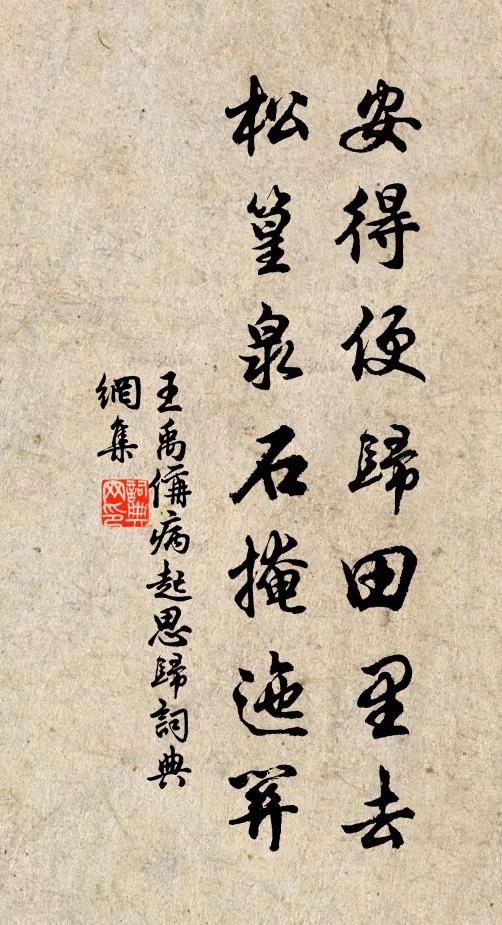 安得便歸田里去
松篁泉石掩迤開
王禹偁病起思歸詞典
網集
詞典
网印